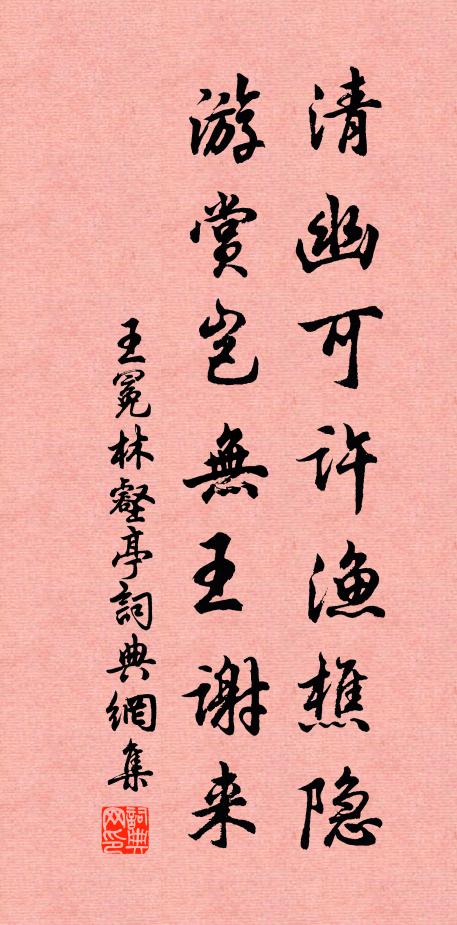 清幽可许渔樵隐
游赏岂無王谢来
王冕林壑亭詞典網集
詞典网印